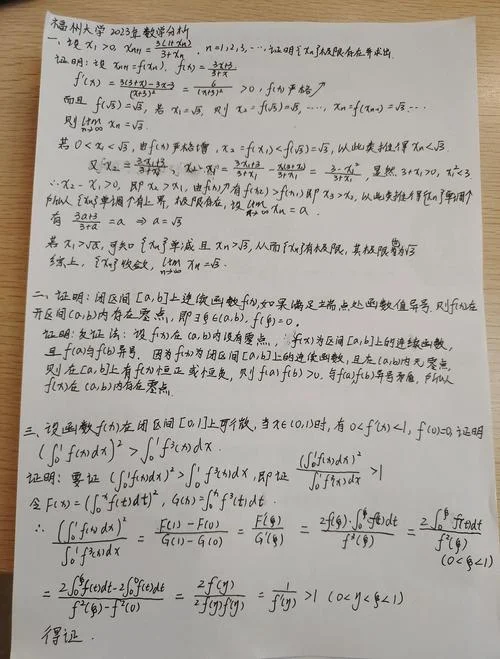 福州大学 2023年数学分析
一、设 x₁>0, xₙ₊₁ = 3(1+xₙ)/(3+xₙ), n=1,2,3,…,证明{xₙ}极限存在并求出.
证明:设 xₙ₊₁=f(xₙ), f(x)=(3x+3)/(3+x)
f'(x)=(3(3+x)-3x-3)/(x+3)²=6/(x+3)²>0, f(x)严格↗
而且 f(√3)=√3, 若 x₁=√3, 则 x₂=f(√3)=√3, …, xₙ=f(xₙ₋₁)=√3…
则 lim(n→∞) xₙ=√3.
若 0<x₁<√3, 由f(x)严格增, x₂=f(x₁)<f(√3)=√3, 以此类推得 xₙ<√3.
又 x₂=(3x₁+3)/(3+x₁), x₂-x₁=(3x₁+3)/(3+x₁)-x₁(3+x₁)/(3+x₁)=(3-x₁²)/(3+x₁), 显然 3+x₁>0, x₁²<3
∴x₂-x₁>0, 即 x₂>x₁, 由f(x)↗有f(x₂)>f(x₁)即 x₃>x₂, 以此类推得{xₙ}单调↗
所以{xₙ}单调↗有上界, 极限存在, 设 lim(n→∞) xₙ=a.
有 (3a+3)/(3+a)=a ⇒ a=√3
若 x₁>√3, 可知{xₙ}单减且 xₙ>√3, 从而{xₙ}有极限, 其极限也为√3
综上, {xₙ}收敛, lim(n→∞) xₙ=√3.
二、证明:闭区间[a,b]上连续函数f(x),如果满足端点处函数值异号,则f(x)在
开区间(a,b)内存在零点, 即∃ξ∈(a,b), f(ξ)=0.
证明:反证法:设f(x)在(a,b)内没有零点, f(x)为区间[a,b]上的连续函数,
且f(a)与f(b)异号. 因为f(x)为闭区间[a,b]上的连续函数, 且在(a,b)内无零点,
则在[a,b]上有f(x)恒正或恒负, 则f(a)f(b)>0. 与f(a),f(b)异号矛盾, 所以
f(x)在(a,b)内存在零点.
三、设函数f(x)在闭区间[0,1]上可微, 当x∈(0,1)时, 有 0<f'(x)<1, f(0)=0, 证明
(∫₀¹f(x)dx)²>∫₀¹f³(x)dx.
证明:要证 (∫₀¹f(x)dx)²>∫₀¹f³(x)dx, 即证 (∫₀¹f(x)dx)²/∫₀¹f³(x)dx>1
令 F(x)=(∫₀ˣf(t)dt)², G(x)=∫₀ˣf³(t)dt.
∴ (∫₀¹f(x)dx)²/∫₀¹f³(x)dx = (F(1)-F(0))/(G(1)-G(0)) = F'(ξ)/G'(ξ) = 2f(ξ)·∫₀^ξ f(t)dt/f³(ξ) = 2∫₀^ξ f(t)dt/f²(ξ)
(0<ξ<1)
= (2∫₀^ξ f(t)dt-2∫₀⁰f(t)dt)/(f²(ξ)-f²(0)) = 2f(η)/(2f(η)f'(η)) = 1/f'(η) >1 (0<η<ξ<1)
得证.